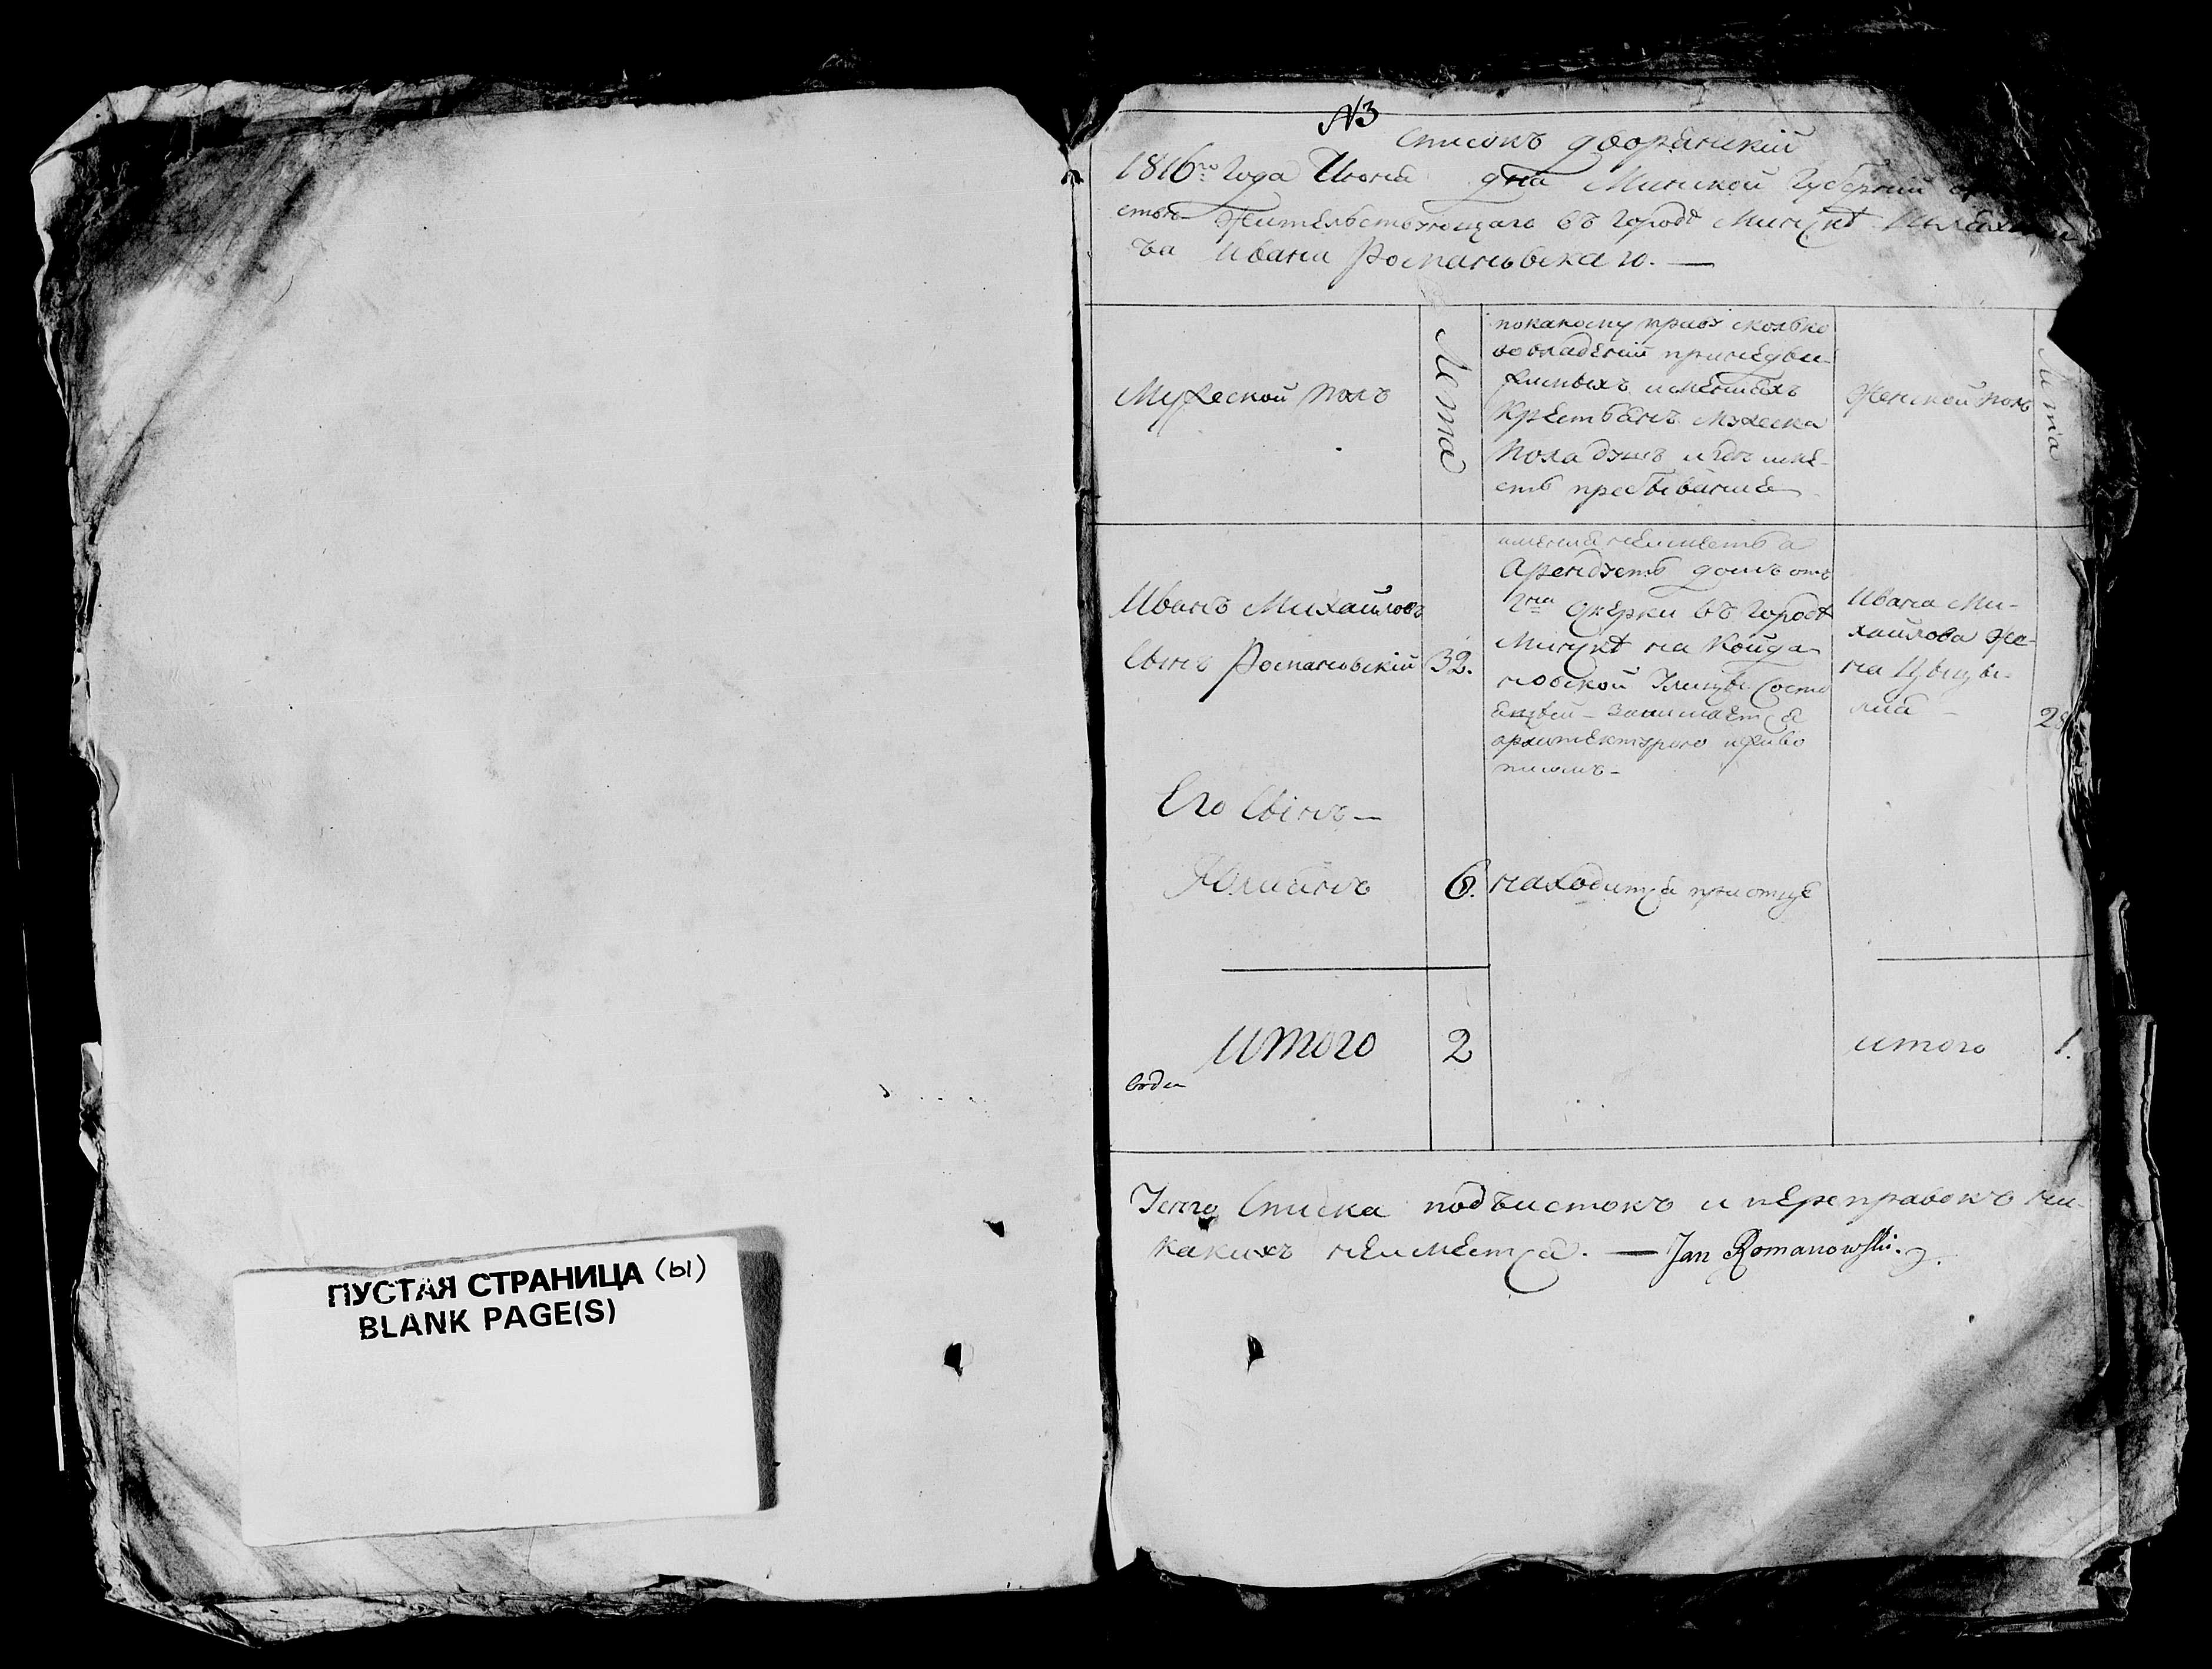 ПУСТАЯ СТРАНИЦА (ы)
BLANK PAGE(S)
№3
Списокъ дворянскій
1816го Года Июня дня Минской Губерніи
жительствующаго въ городѣ Минскѣ
Ивана Романовскаго. —
Мужеской полъ
Лета
покакому праву сколько
во владеніи принедви-
жимыхъ имѣнияхъ
Крестьянъ мужеска
Пола душъ и где имѣ-
етъ пребываниe
Женской полъ
Лета
Иванъ Михайловъ
Сынъ Романовскій
32.
имения неимеетъ а
Арендуетъ домъ отъ
Гна Оскерки въ городѣ
Минскѣ на Койда
новской Улицы состо
ящей — Занимается
архитектурою и живо
писью —
Ивана Ми-
хайлова же-
на Цыцы-
лия —
28
Его Сынъ —
Юлиянъ
6.
находится при отце
Итого
2
итого
1.
Усего Списка подъчистокъ и переправокъ ни-
какихъ неимеется. — Jan Romanowski.